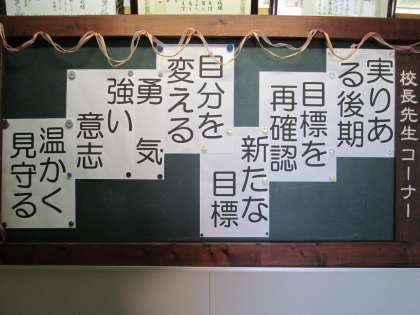 校長先生コーナー
実りあ
る後期
目標を
再確認
新たな
目標
自分を
変える
勇気
強い
意志
温かく
見守る